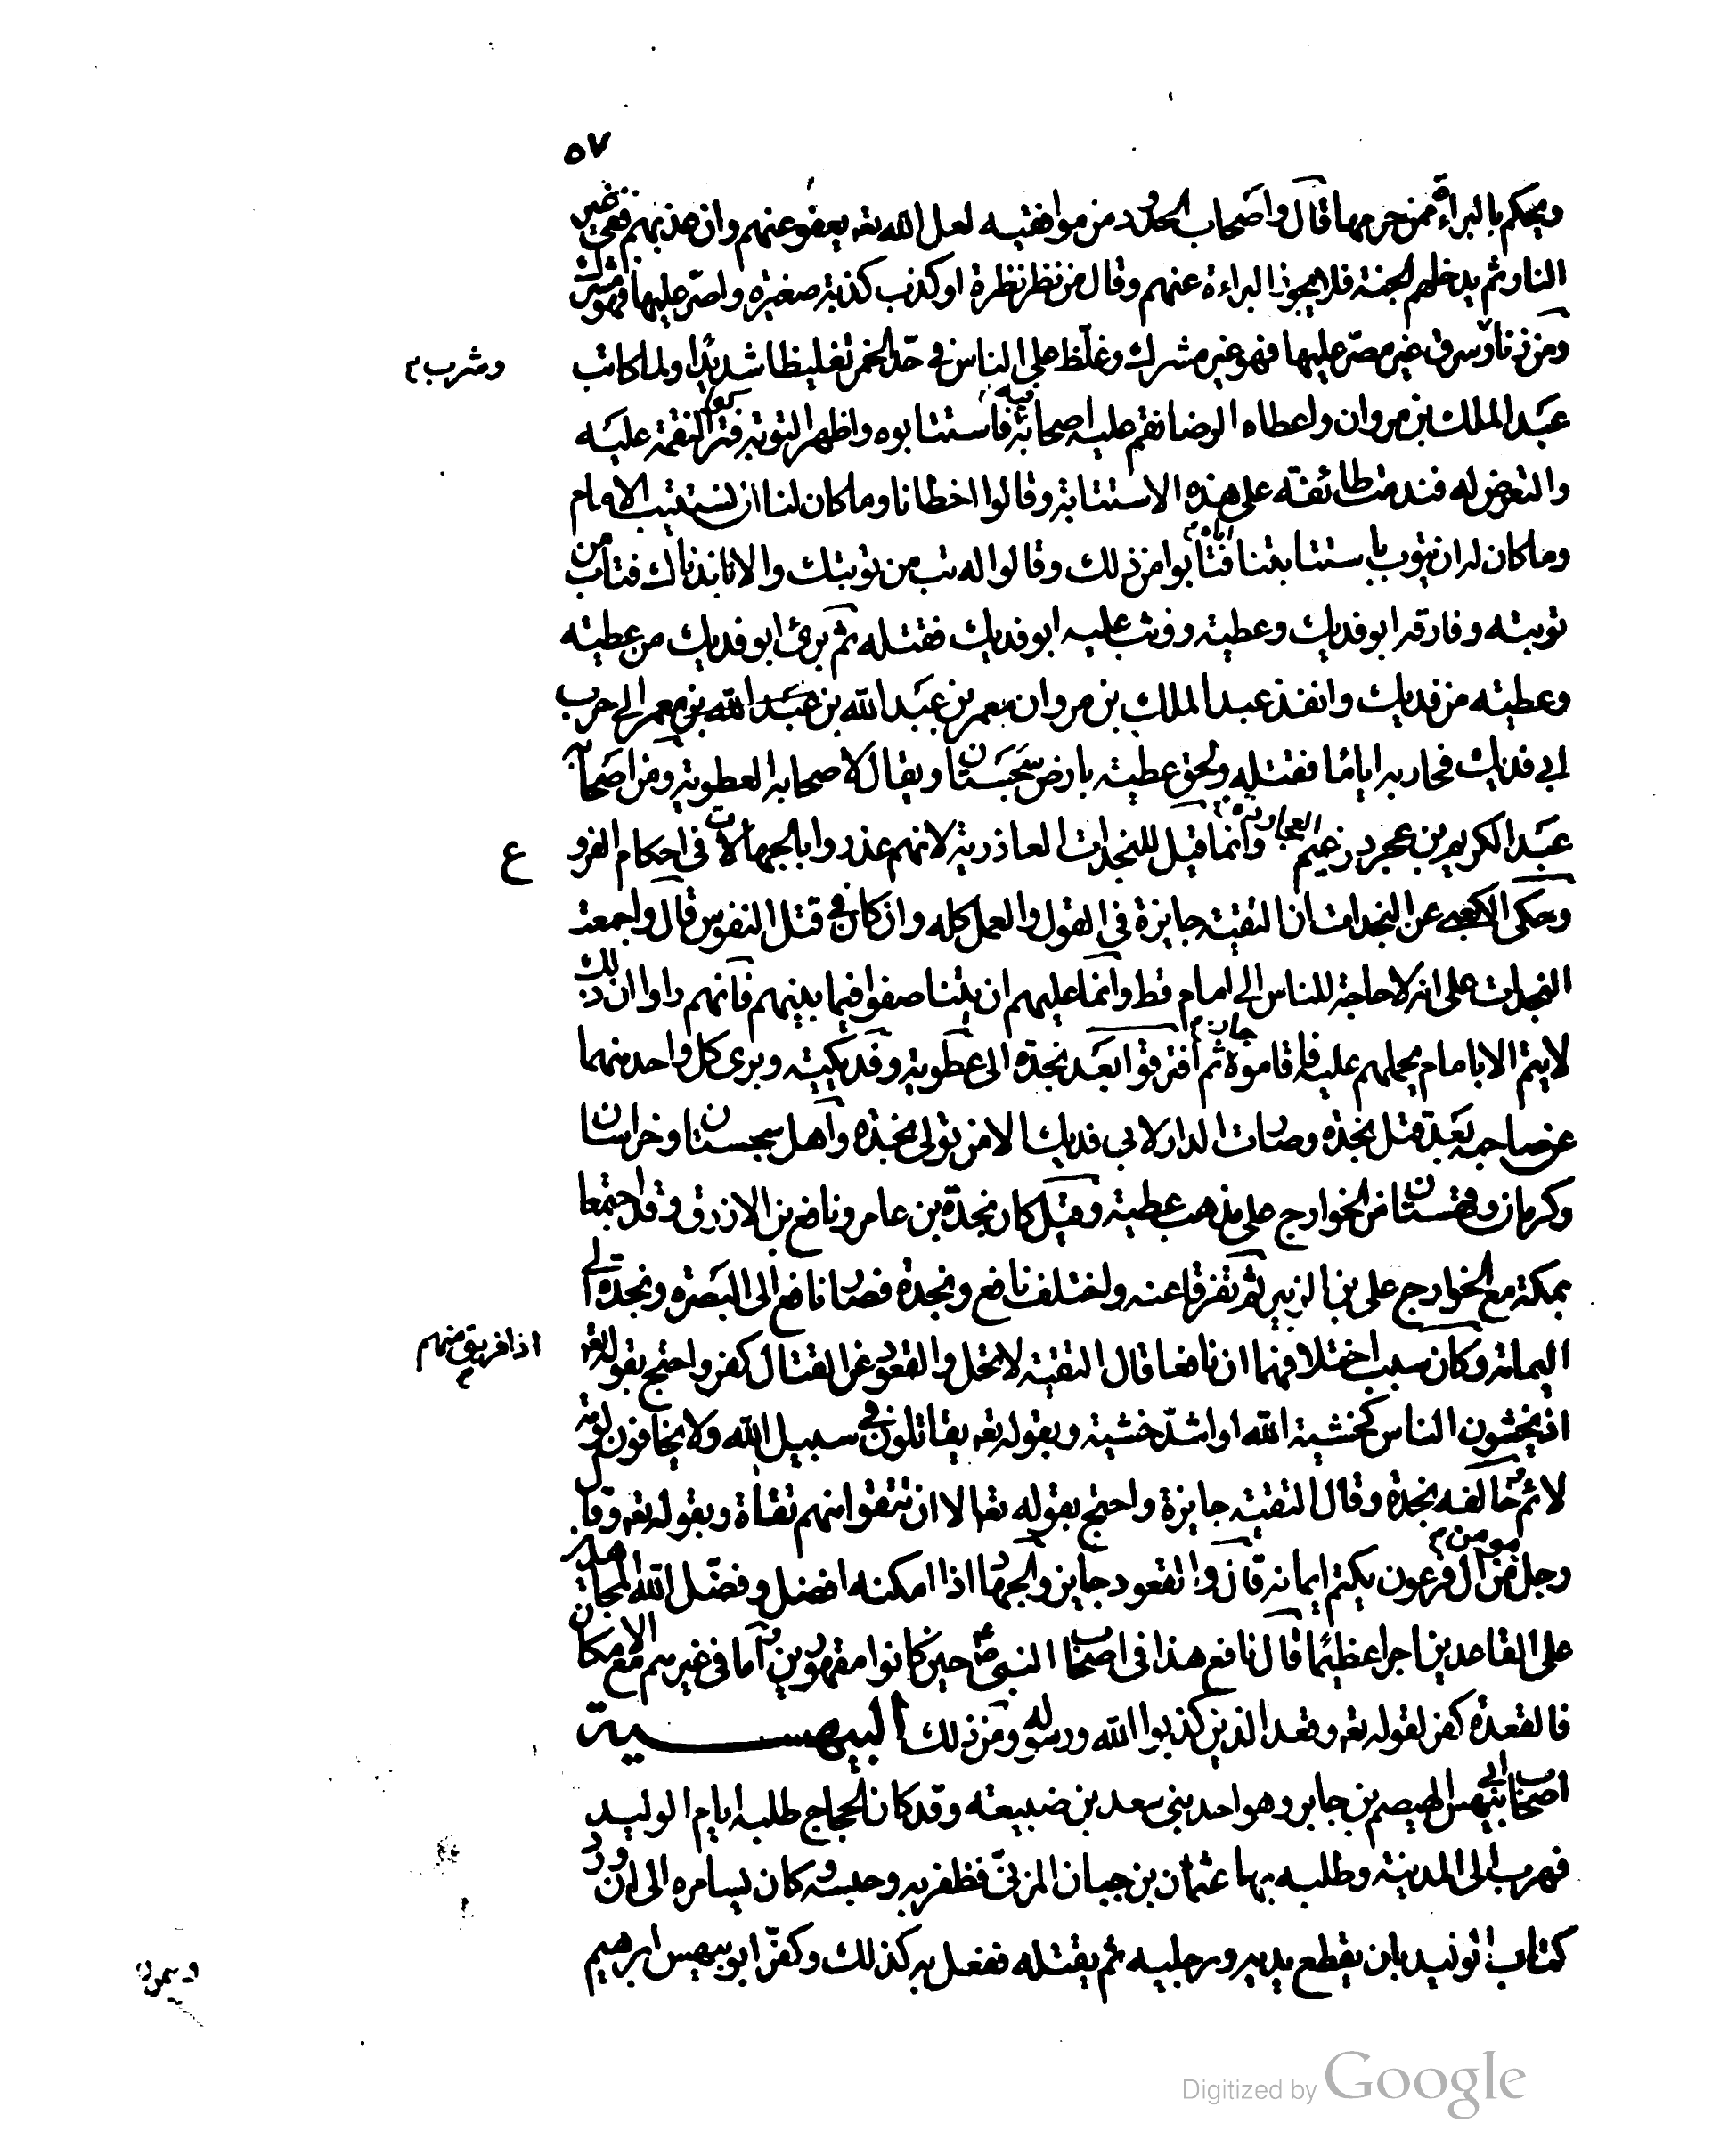 ٥٧
ويحكم بالبراءة ممن حرمها قال واصحاب الحدود من موافقيه لعل الله تعه يعفو عنهم وان عذبهم ففي غير
النار ثم يدخلهم الجنة فلا يجوز البراءة عنهم وقال من نظر نظرة او كذب كذبة صغيرة واصرّ عليها فهو مشرك
ومن زنا وسرق غير مصرّ عليها فهو غير مشرك وغلّظ على الناس في حدّ الخمر تغليظا شديدا ولما كاتب
وشرب م
عبد الملك بن مروان واعطاه الرضا نقم عليه اصحابه فيه فاستتابوه واظهر التوبة فتركوا النقمة عليه
والتعرض له فندمت طائفة على هذه الاستتابة وقالوا اخطانا وما كان لنا ان نستتيب الامام
وما كان له ان يتوب باستتابتنا اياه م فتابوا من ذلك وقالوا له تب من توبتك والا نابذناك فتاب من
توبته وفارقه ابو فديك وعطية ووثب عليه ابو فديك فقتله ثم برئ ابو فديك من عطية
وعطية من فديك وانفذ عبد الملك بن مروان معمر بن عبد الله بن عبد الله بن معمر الى حرب
ابي فديك فحاربه اياما فقتله ولحق عطية بارض سجستان ويقال لاصحابه العطوية ومن اصحابه
عبد الكريم بن عجرد زعيم العجاردة وانما قيل للنجدات العاذرية لانهم عذروا بالجهالات في احكام الفرو
ع
وحكى الكعبي عن النجدات ان التقية جايزة في القول والعمل كله وان كان في قتل النفوس قال واجمعت
النجدات على انه لا حاجة للناس الى امام قط وانما عليهم ان يتناصفوا فيما بينهم فانهم راوا ان ذلك
لا يتم الا بامام يحملهم عليه فاقاموه جاز م ثم افترقوا بعد نجدة الى عطوية وفديكية وبرى كل واحد منهما
عن صاحبه بعد قتل نجدة وصارت الدار لابي فديك الا من تولى نجدة واهل سجستان وخراسان
وكرمان وقهستان من الخوارج على مذهب عطية وقيل كان نجدة بن عامر ونافع بن الازرق وقد اجتمعا
بمكة مع الخوارج على بن الزبير ثم تفرقا عنه واختلف نافع ونجدة فصار نافع الى البصرة ونجدة الى
اليمامة وكان سبب اختلافهما ان نافعا قال التقية لا تحل والقعود عن القتال كفر واحتج بقوله تعه
اذا فريق منهم م
اذ يخشون الناس كخشية الله او اشدّ خشية وبقوله تعه يقاتلون في سبيل الله ولا يخافون لومة
لائم خالفه نجدة وقال التقية جايزة واحتج بقوله تعا الا ان تتقوا منهم تقاة وبقوله تعه وقال
رجل مومن م من ال فرعون يكتم ايمانه قال والقعود جايز والجهاد اذا امكنه افضل وفضّل الله المجاهدين
على القاعدين اجرا عظيما قال نافع هذا في اصحاب النبي صم حين كانوا مقهورين اما في غيرهم مع الامكان
فالقعدة كفر لقوله تعه وقعد الذين كذبوا الله ورسوله ومن ذلك البيهسية
اصحاب ابي بيهس الهيصم بن جابر وهو احد بني سعد بن ضبيعة وقد كان الحجاج طلبه ايام الوليد
فهرب الى المدينة وطلبه بها عثمان بن حيان المزنيّ فظفر به وحبسه كان يسامره الى ان ورد
كتاب الوليد بان يقطع يديه ورجليه ثم يقتله ففعل به كذلك وكفّر ابو بيهس ابرهيم
Digitized by Google